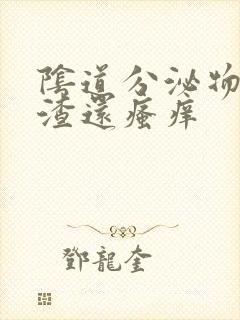 陰道分泌物
渣還瘙痒
鄧龍奎